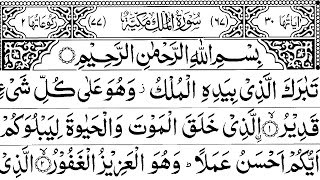 اٰیَاتُهَا ۳۰ (۶۷) سُوْرَةُ الْمُلْكِ مَكِّیَّةٌ (۷۷) رُكُوْعَاتُهَا ۲
بِسْمِ اللهِ الرَّحْمٰنِ الرَّحِیْمِ
تَبٰرَكَ الَّذِیْ بِیَدِهِ الْمُلْكُ ز وَهُوَ عَلٰی كُلِّ شَیْءٍ
قَدِیْرُ ۙ﴿۱﴾ الَّذِیْ خَلَقَ الْمَوْتَ وَالْحَیٰوةَ لِیَبْلُوَكُمْ
اَیُّكُمْ اَحْسَنُ عَمَلًا ؕ وَهُوَ الْعَزِیْزُ الْغَفُوْرُ ۙ﴿۲﴾ الَّذِیْ